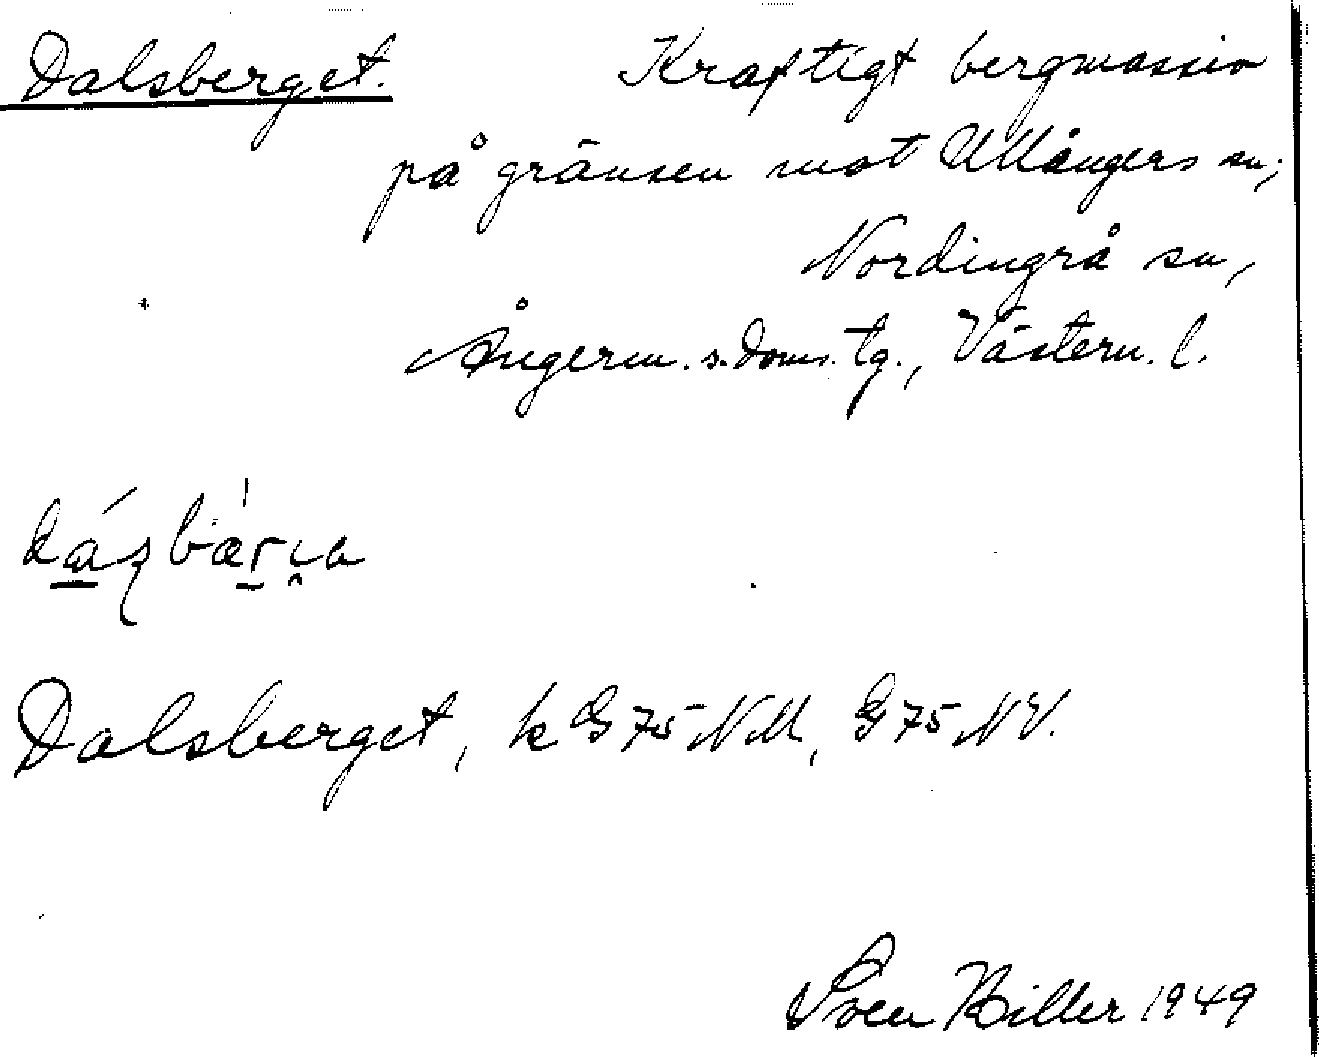 Dalsberget. Kraftigt bergmassiv
på gränsen mot Ullångers sn;
Nordingrå sn,
Ångerm. s. doms. tg., Västern. l.
Dalsberget, k G 75 NM, G 75 NV.
Sven Biller 1949